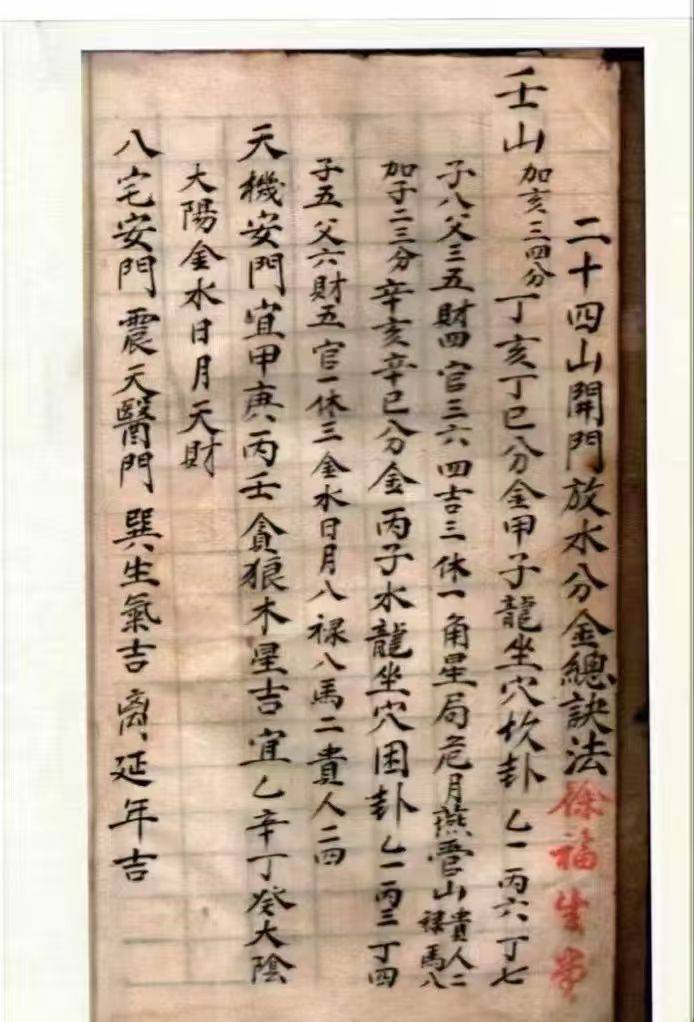 二十四山開門放水分金總訣法 徐福生堂
壬山 加亥三四分 丁亥丁巳分金甲子龍坐穴坎卦 乙一丙六丁七
子八父三五財四官三六四吉三休一角星局危月燕管山 貴人二 祿馬八
加子二三分 辛亥辛巳分金 丙子水龍坐穴困卦 乙一丙三丁四
子五父六財五官一休三金水日月八祿八馬二貴人二四
天機安門宜甲庚丙壬貪狼木星吉宜乙辛丁癸大陰
大陽金水日月天財
八宅安門 震天醫門 巽生氣吉 离延年吉